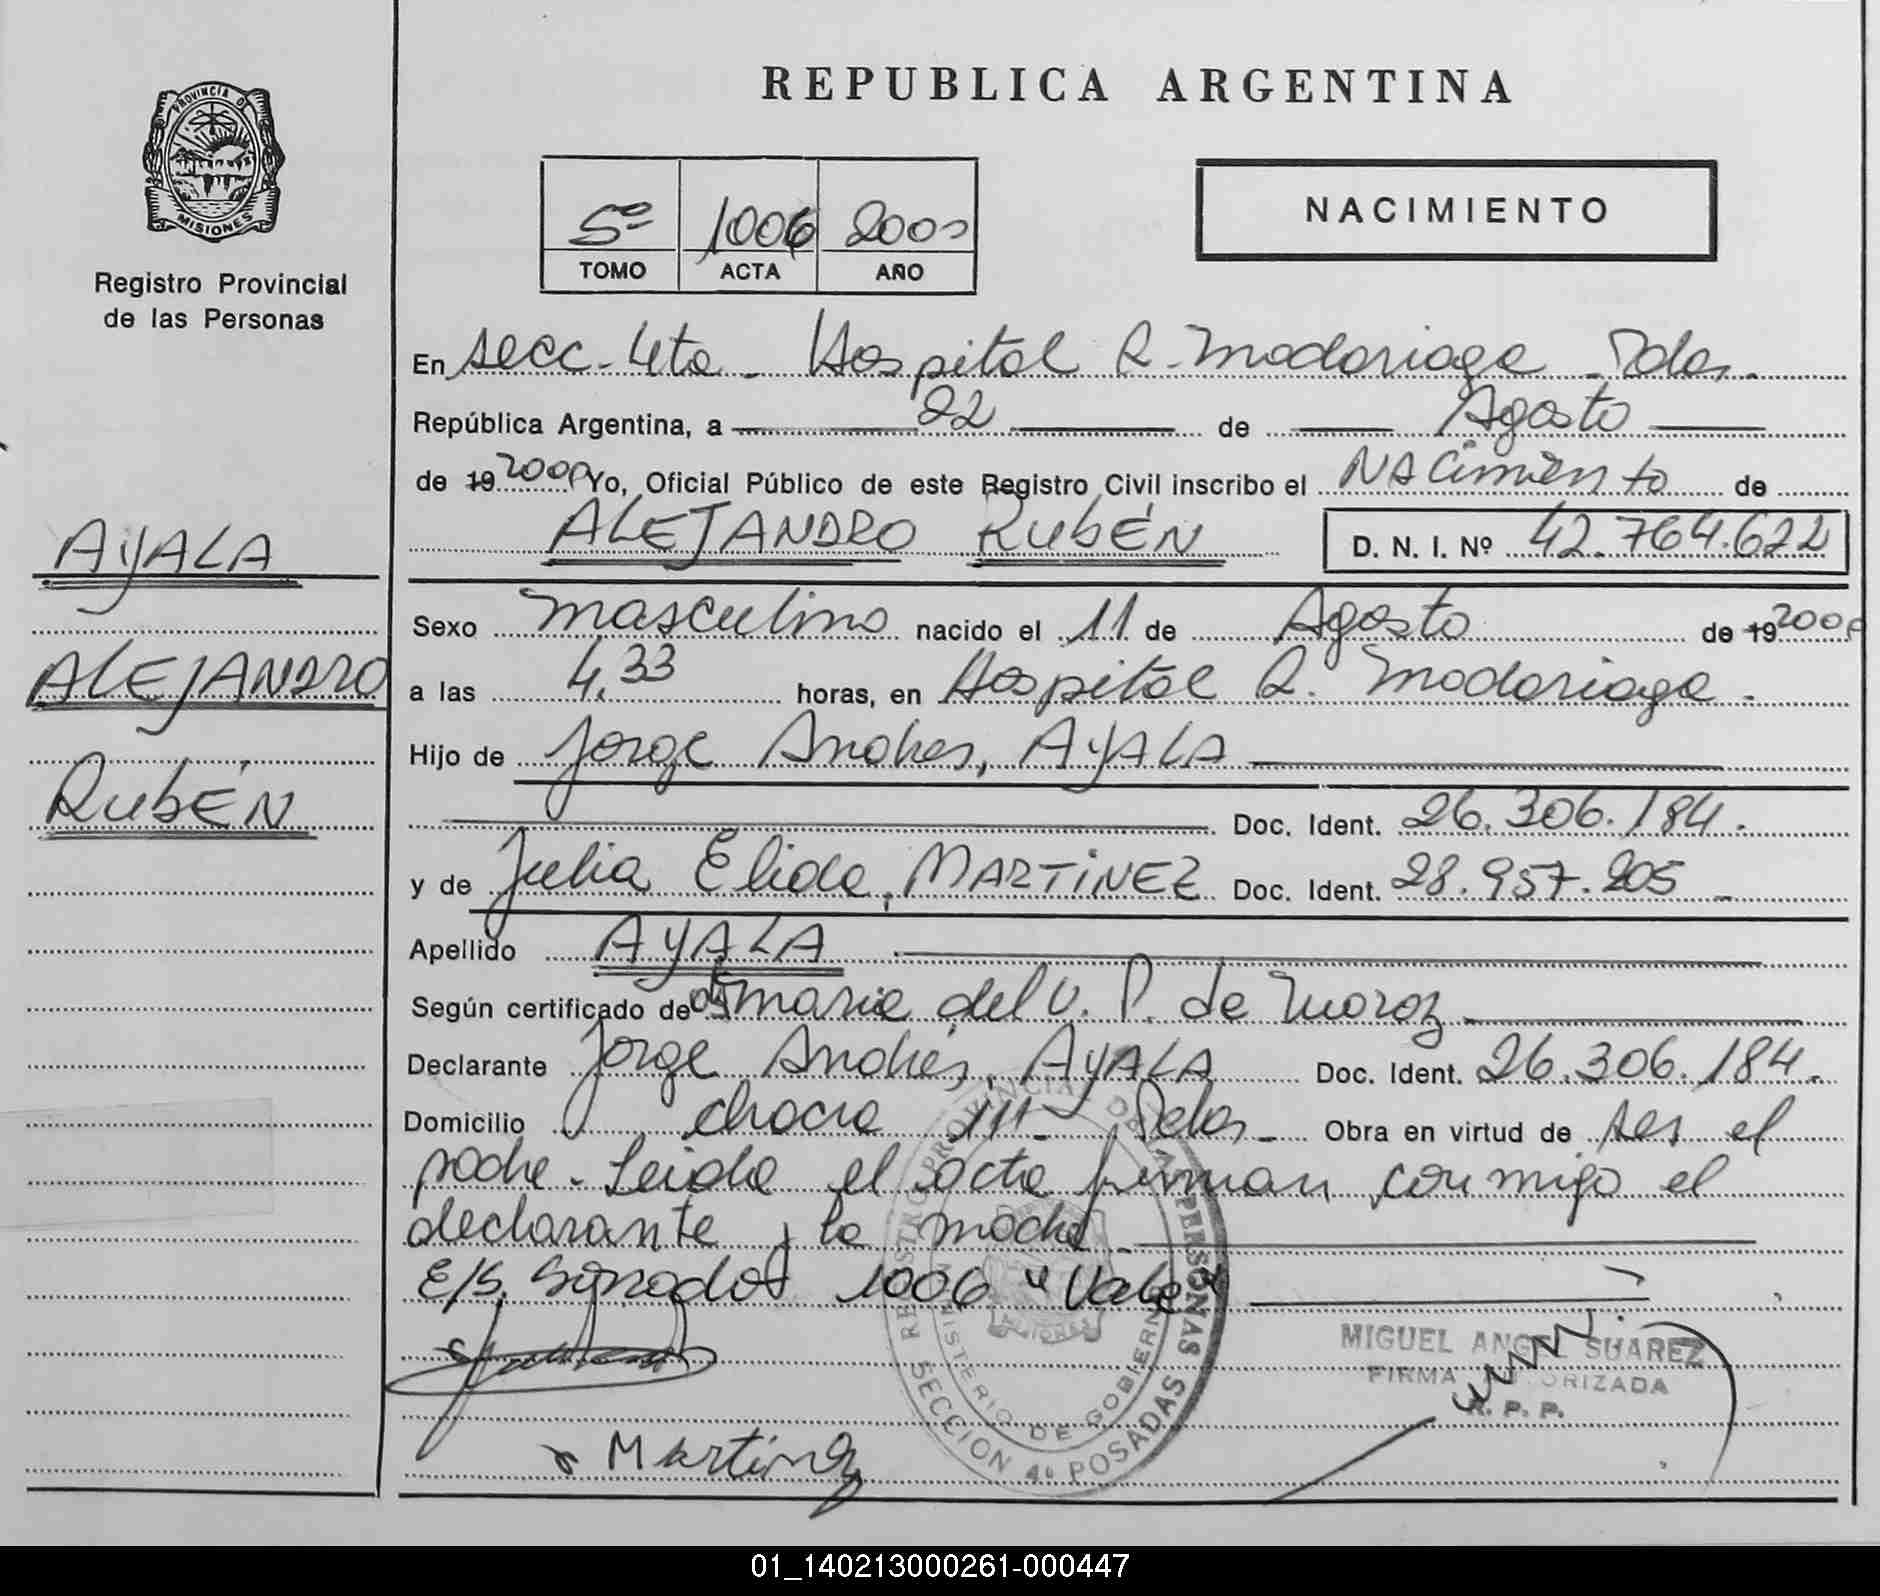 REPUBLICA ARGENTINA
PROVINCIA DE
MISIONES
Registro Provincial
de las Personas
5º 1006 2000
TOMO ACTA AÑO
NACIMIENTO
AYALA
ALEJANDRO
RUBÉN
En secc. 4ta - Hospital R. Madariaga - Pdas.
República Argentina, a 22 de Agosto
de 19 2000 Yo, Oficial Público de este Registro Civil inscribo el NACimiento de
ALEJANDRO RUBÉN D. N. I. Nº 42.764.622
Sexo masculino nacido el 11 de Agosto de 19 2000
a las 4.33 horas, en Hospital R. Madariaga.
Hijo de Jorge Andres, AYALA
Doc. Ident. 26.306.184.
y de Julia Elida, MARTINEZ Doc. Ident. 28.957.205
Apellido AYALA
Según certificado de maria del V. P. de Moroz
Declarante Jorge Andrés, AYALA Doc. Ident. 26.306.184.
Domicilio chacra 111 - Pdas - Obra en virtud de ser el
padre - Leida el acta firman conmigo el
declarante y la madre
E/S. 1006 "Vale"
REGISTRO PROVINCIAL DE LAS PERSONAS
MINISTERIO DE GOBIERNO
MISIONES
SECCION 4º POSADAS
MIGUEL ANGEL SUAREZ
FIRMA AUTORIZADA
R. P. P.
Martinez
01_140213000261-000447